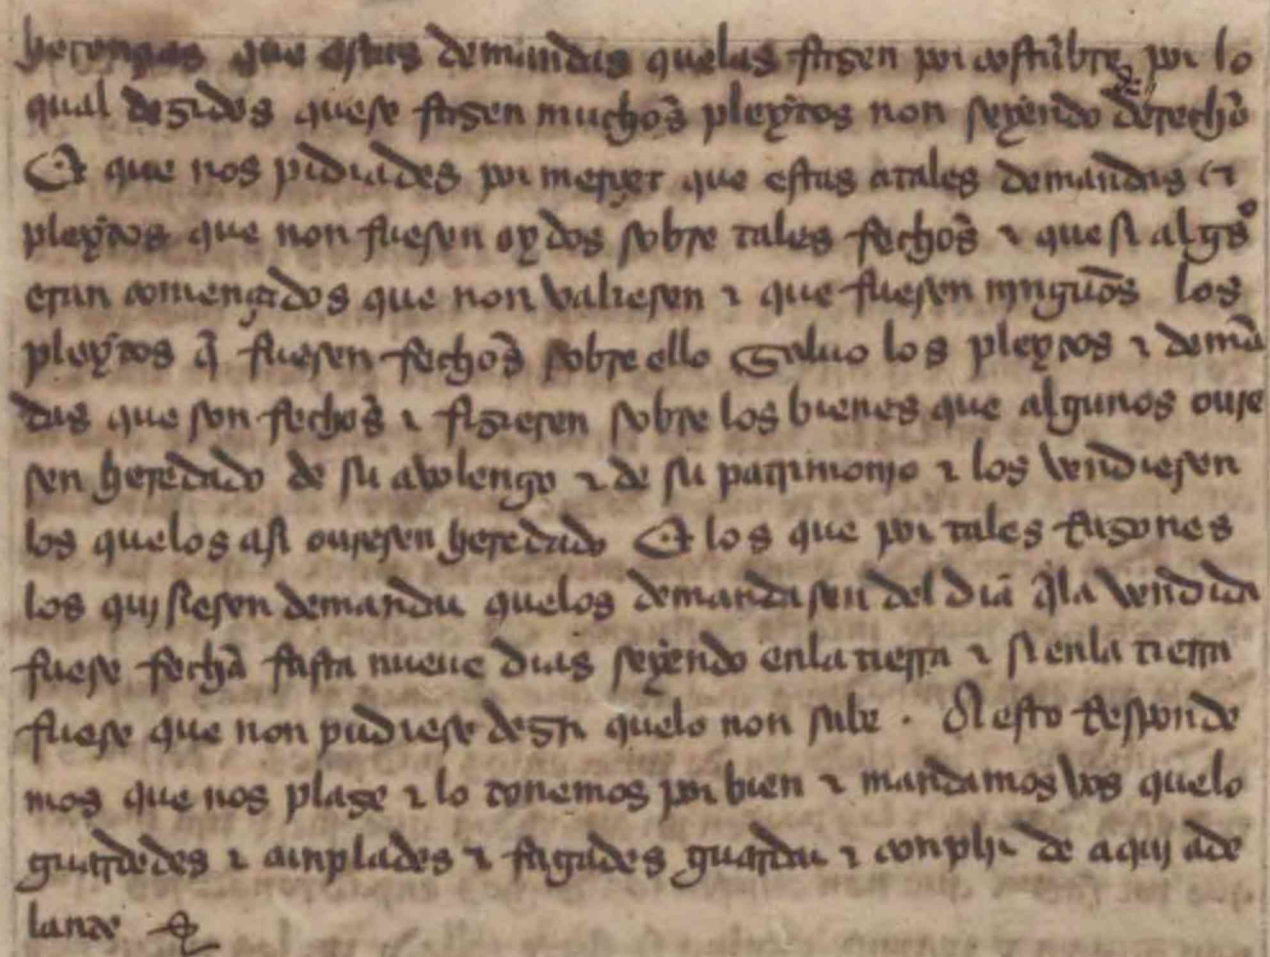 herençias que estas demandas quelas fazen por costũbre por lo
qual dezides quese fazen muchos pleytos non seyendo derecho de
Et que nos pidiades por merçet que estas atales demandas et
pleytos que non fuesen oydos sobre tales fechos τ que si algºs
eran començados que non valiesen τ que fuesen njnguõs los
pleytos q̃ fuesen fechos sobre ello Saluo los pleytos τ demã
das que son fechos τ fizieren sobre los bienes que algunos ouie
sen heredado de su avolengo τ de su patrimonjo τ los vendiesen
los quelos asi ouiesen heredado Et los que por tales razones
los quisiesen demandar quelos demandasen del dia q̃la vendida
fuese fecha fasta nueue dias seyendo enla tierra τ si enla tierra
fuese que non pudiese dezir quelo non sabe . A esto Responde
mos que nos plaze τ lo tenemos por bien τ mandamos vos quelo
guardedes τ cunplades τ fagades guardar τ conplir de aqui ade
lante